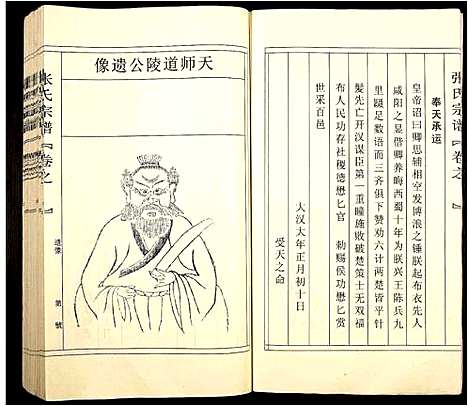 张氏宗谱『卷之 』
奉天承运
皇帝诏曰卿思辅相空发博浪之锤朕起布衣先人
咸阳之晃偕卿养晦西蜀十年为朕兴王陈兵九
里蹑足数语而三齐俱下赞劝六计而楚皆平针
髮先亡开汉谋臣第一重瞳施败破楚策士无双福
布人民功存社稷德懋匕官 勅赐侯功懋匕赏
世采百邑
大汉大年正月初十日
受天之命
天师道陵公遗像
张氏宗谱『卷之 』
遗像
第 號